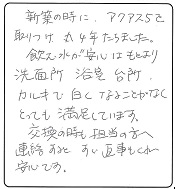 新築の時に、アクアス5を
取りつけ 丸4年たちました。
飲み水が安心はもとより
洗面所 浴室 台所、
カルキで白くなることがなく
とっても満足しています。
交換の時も担当の方へ
連絡すると すぐ返事もくれ
安心です。